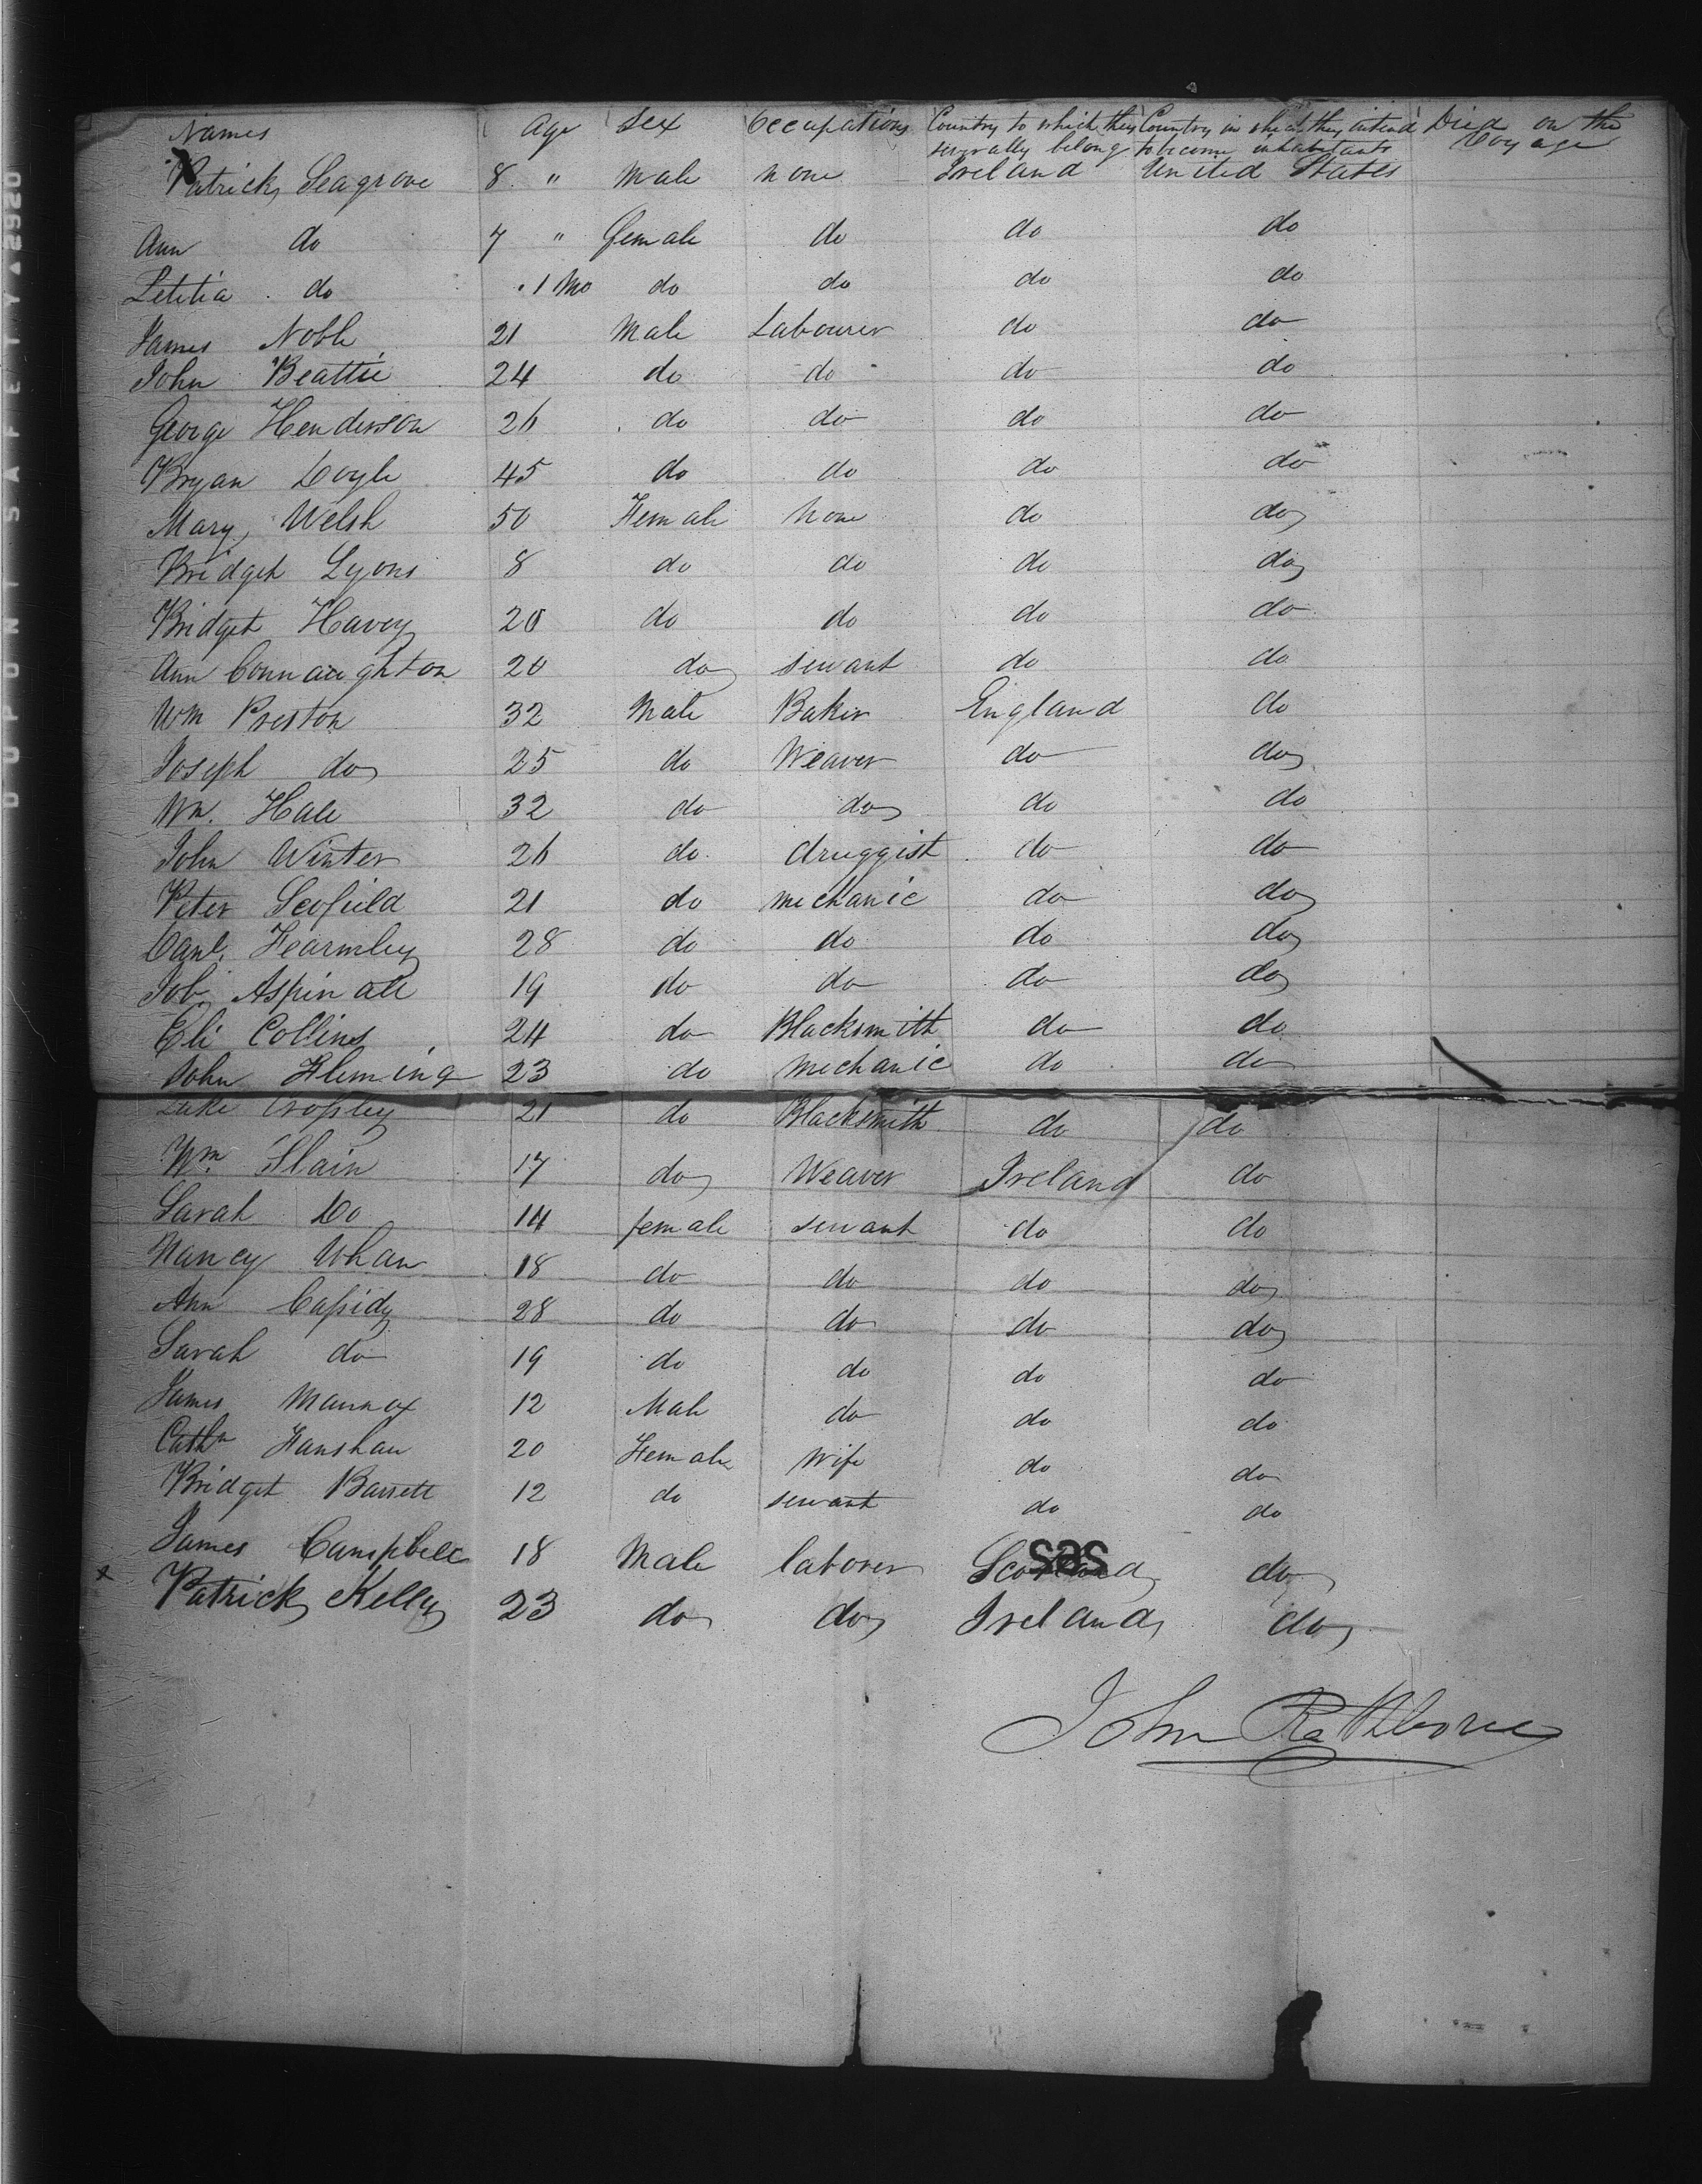 Names Age Sex Occupations Country to which they severally belong Country in which they intend to become inhabitants Died on the Voyage
Patrick Seagrove 8 " Male none Ireland United States
Ann do 7 " female do do do
Letitia do 1 Mo do do do do
James Noble 21 Male Labourer do do
John Beattie 24 do do do do
George Henderson 26 do do do do
Bryan Doyle 45 do do do do
Mary Welsh 50 Female None do do
Bridget Lyons 8 do do do do
Bridget Havey 20 do do do do
Ann Connaughton 20 do servant do do
Wm Preston 32 Male Baker England do
Joseph do 25 do Weaver do do
Wm. Hale 32 do do do do
John Winter 26 do druggist do do
Peter Scofield 21 do mechanic do do
Danl. Fearnley 28 do do do do
Job Aspinall 19 do do do do
Eli Collins 24 do Blacksmith do do
John Fleming 23 do mechanic do do
Luke Crossley 21 do Blacksmith do do
Wm. Slain 17 do Weaver Ireland do
Sarah Do 14 female servant do do
Nancy Whan 18 do do do do
Ann Cassidy 28 do do do do
Sarah do 19 do do do do
James 12 Male do do do
Cathn Hanshaw 20 Female Wife do do
Bridget Barrett 12 do servant do do
James Campbell 18 Male laborer Scotland do
x Patrick Kelly 23 do do Ireland do
John Rathborne
DUPONT SAFETY